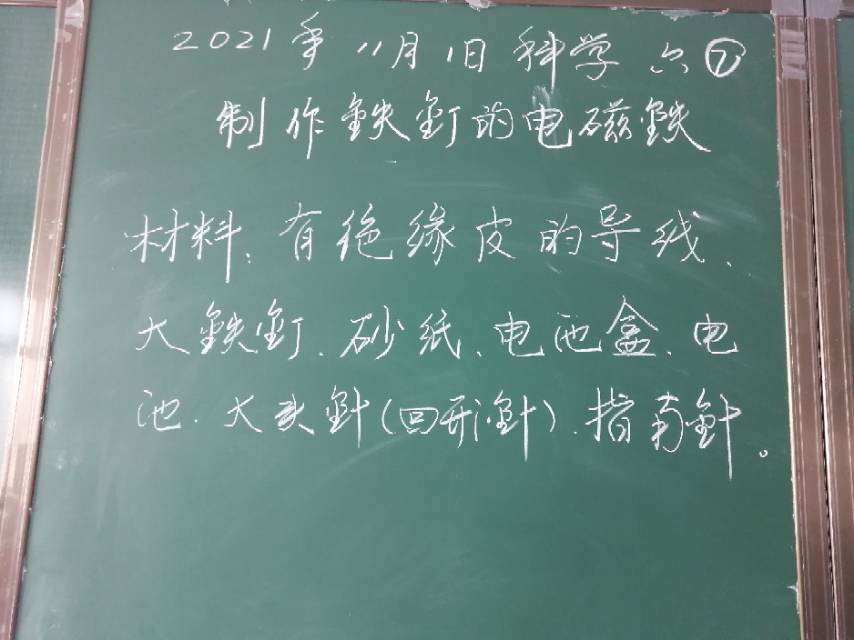 2021年11月1日科学 六⑦
制作铁钉的电磁铁
材料、有绝缘皮的导线、
大铁钉、砂纸、电池盒、电
池、大头針(回形針)、指南針。